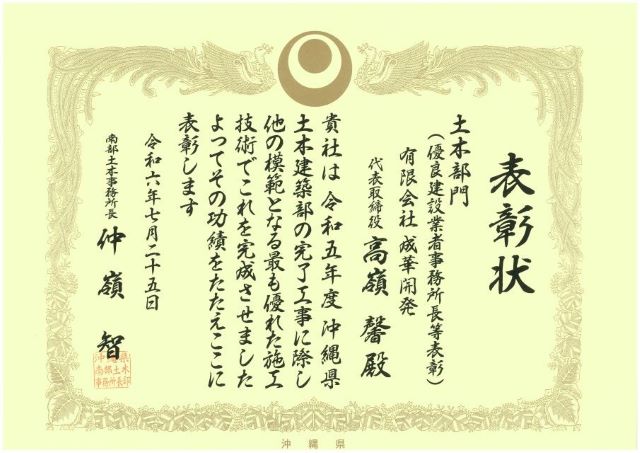 表彰状
土木部門
(優良建設業者事務所長等表彰)
有限会社 成華開発
代表取締役 高嶺 馨 殿
貴社は令和五年度沖縄県
土木建築部の完了工事に際し
他の模範となる最も優れた施工
技術でこれを完成させました
よってその功績をたたえここに
表彰します
令和六年七月二十五日
南部土木事務所長 仲嶺 智
沖縄県
南部土木
事務所長印
沖縄県